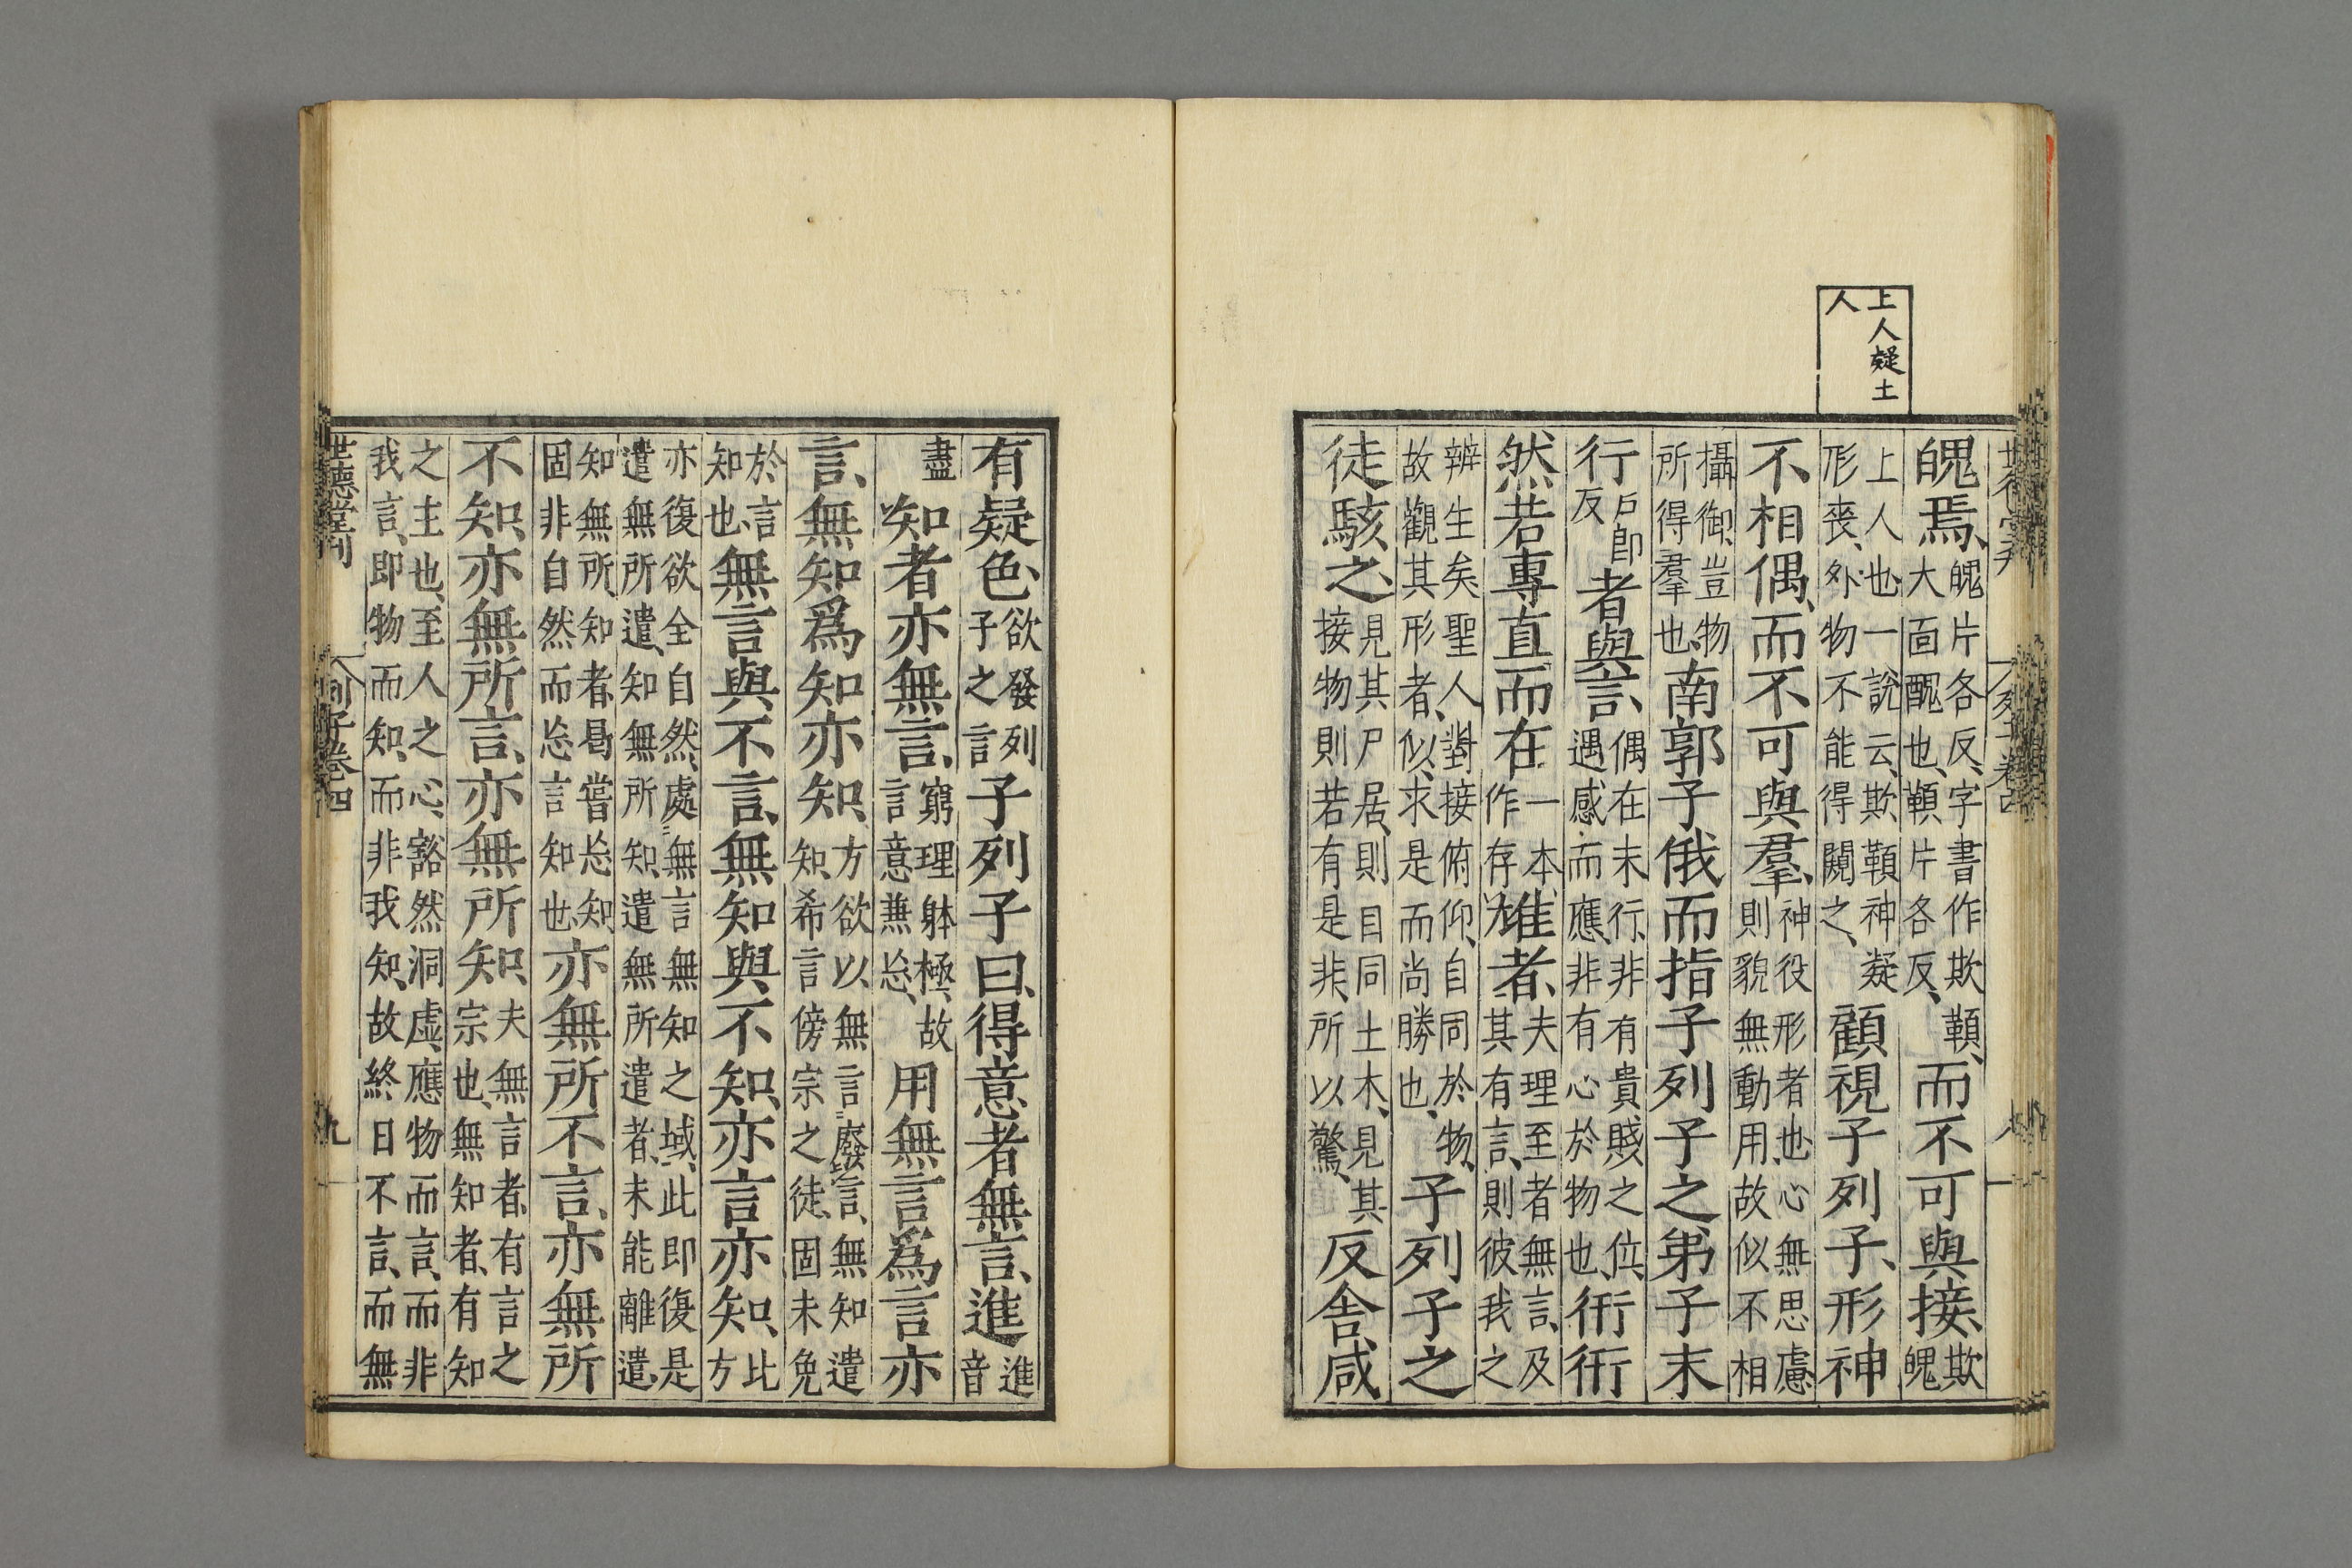 上人疑土
人
魄焉、魄片各反、字書作欺䫏、大面醜也、䫏片各反、而不可與接、欺魄
上人也、一說云、欺䫏神凝形喪、外物不能得闚之、顧視子列子、形神
不相偶、而不可與羣、神役形者也、心無思慮則貌無動用故似不相
攝御、豈物所得羣也、南郭子俄而指子列子之弟子末
行戶郎反者與言、偶在末行、非有貴賤之位、遇感而應、非有心於物也、衎衎
然若專直而在一本作存雄者、夫理至者無言、及其有言、則彼我之
辨生矣、聖人對接俯仰、自同於物、故觀其形者、似求是而尚勝也、子列子之
徒駭之、見其尸居、則目同土木、見其接物則若有是非、所以驚、反舍、咸
有疑色、欲發列子之言子列子曰、得意者無言、進進音
盡知者亦無言、窮理躰極、故言意兼忘、用無言爲言亦
言、無知爲知亦知、方欲以無言廢言、無知遣知、希言傍宗之徒、固未免
於言知也、無言與不言、無知與不知、亦言亦知、比方
亦復欲全自然、處無言無知之域、此即復是遣無所遣、知無所知、遣無所遣者、未能離遣、
知無所知者、曷嘗忘知、固非自然而忘言知也、亦無所不言、亦無所
不知、亦無所言、亦無所知、夫無言者、有言之宗也、無知者、有知
之主也、至人之心、豁然洞虛、應物而言、而非我言、即物而知、而非我知、故終日不言、而無
世德堂刊 列子卷四 九